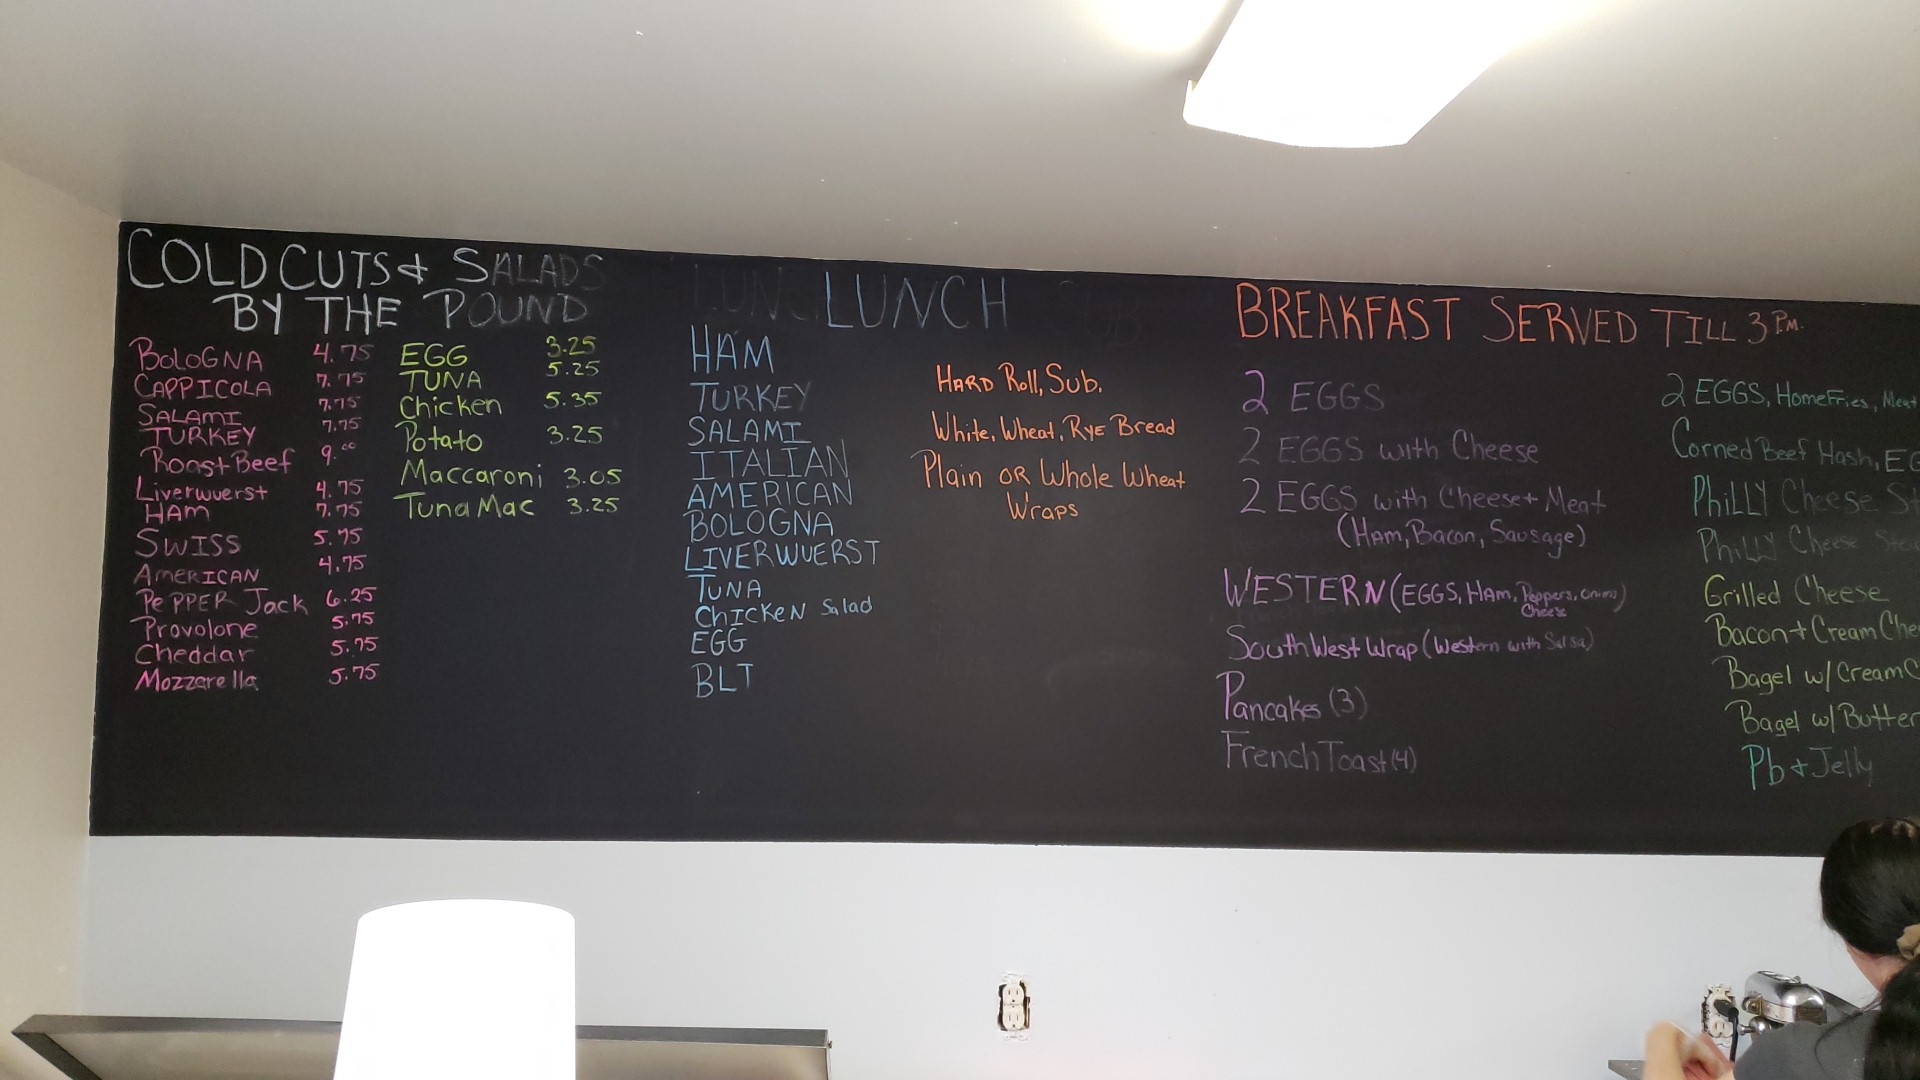 COLD CUTS & SALADS
BY THE POUND
BOLOGNA 4.75
CAPPICOLA 7.75
SALAMI 7.75
TURKEY 7.75
Roast Beef 9.00
Liverwuerst 4.75
HAM 7.75
SWISS 5.75
AMERICAN 4.75
PEPPER Jack 6.25
Provolone 5.75
Cheddar 5.75
Mozzarella 5.75
EGG 3.25
TUNA 5.25
Chicken 5.35
Potato 3.25
Maccaroni 3.05
Tuna Mac 3.25
LUNCH
HAM
TURKEY
SALAMI
ITALIAN
AMERICAN
BOLOGNA
LIVERWUERST
TUNA
CHICKEN Salad
EGG
BLT
HARD Roll, Sub.
White, Wheat, RYE Bread
Plain OR Whole Wheat
Wraps
BREAKFAST SERVED TILL 3 PM.
2 EGGS
2 EGGS with Cheese
2 EGGS with Cheese + Meat
(Ham, Bacon, Sausage)
WESTERN (EGGS, HAM, Peppers, onions)
Cheese
SouthWest Wrap (Western with Salsa)
Pancakes (3)
French Toast (4)
2 EGGS, HomeFries, Meat
Corned Beef Hash, EG
PhiLLY Cheese St
PhiLLY Cheese Stea
Grilled Cheese
Bacon + Cream Che
Bagel w/ Cream C
Bagel w/ Butter
Pb + Jelly